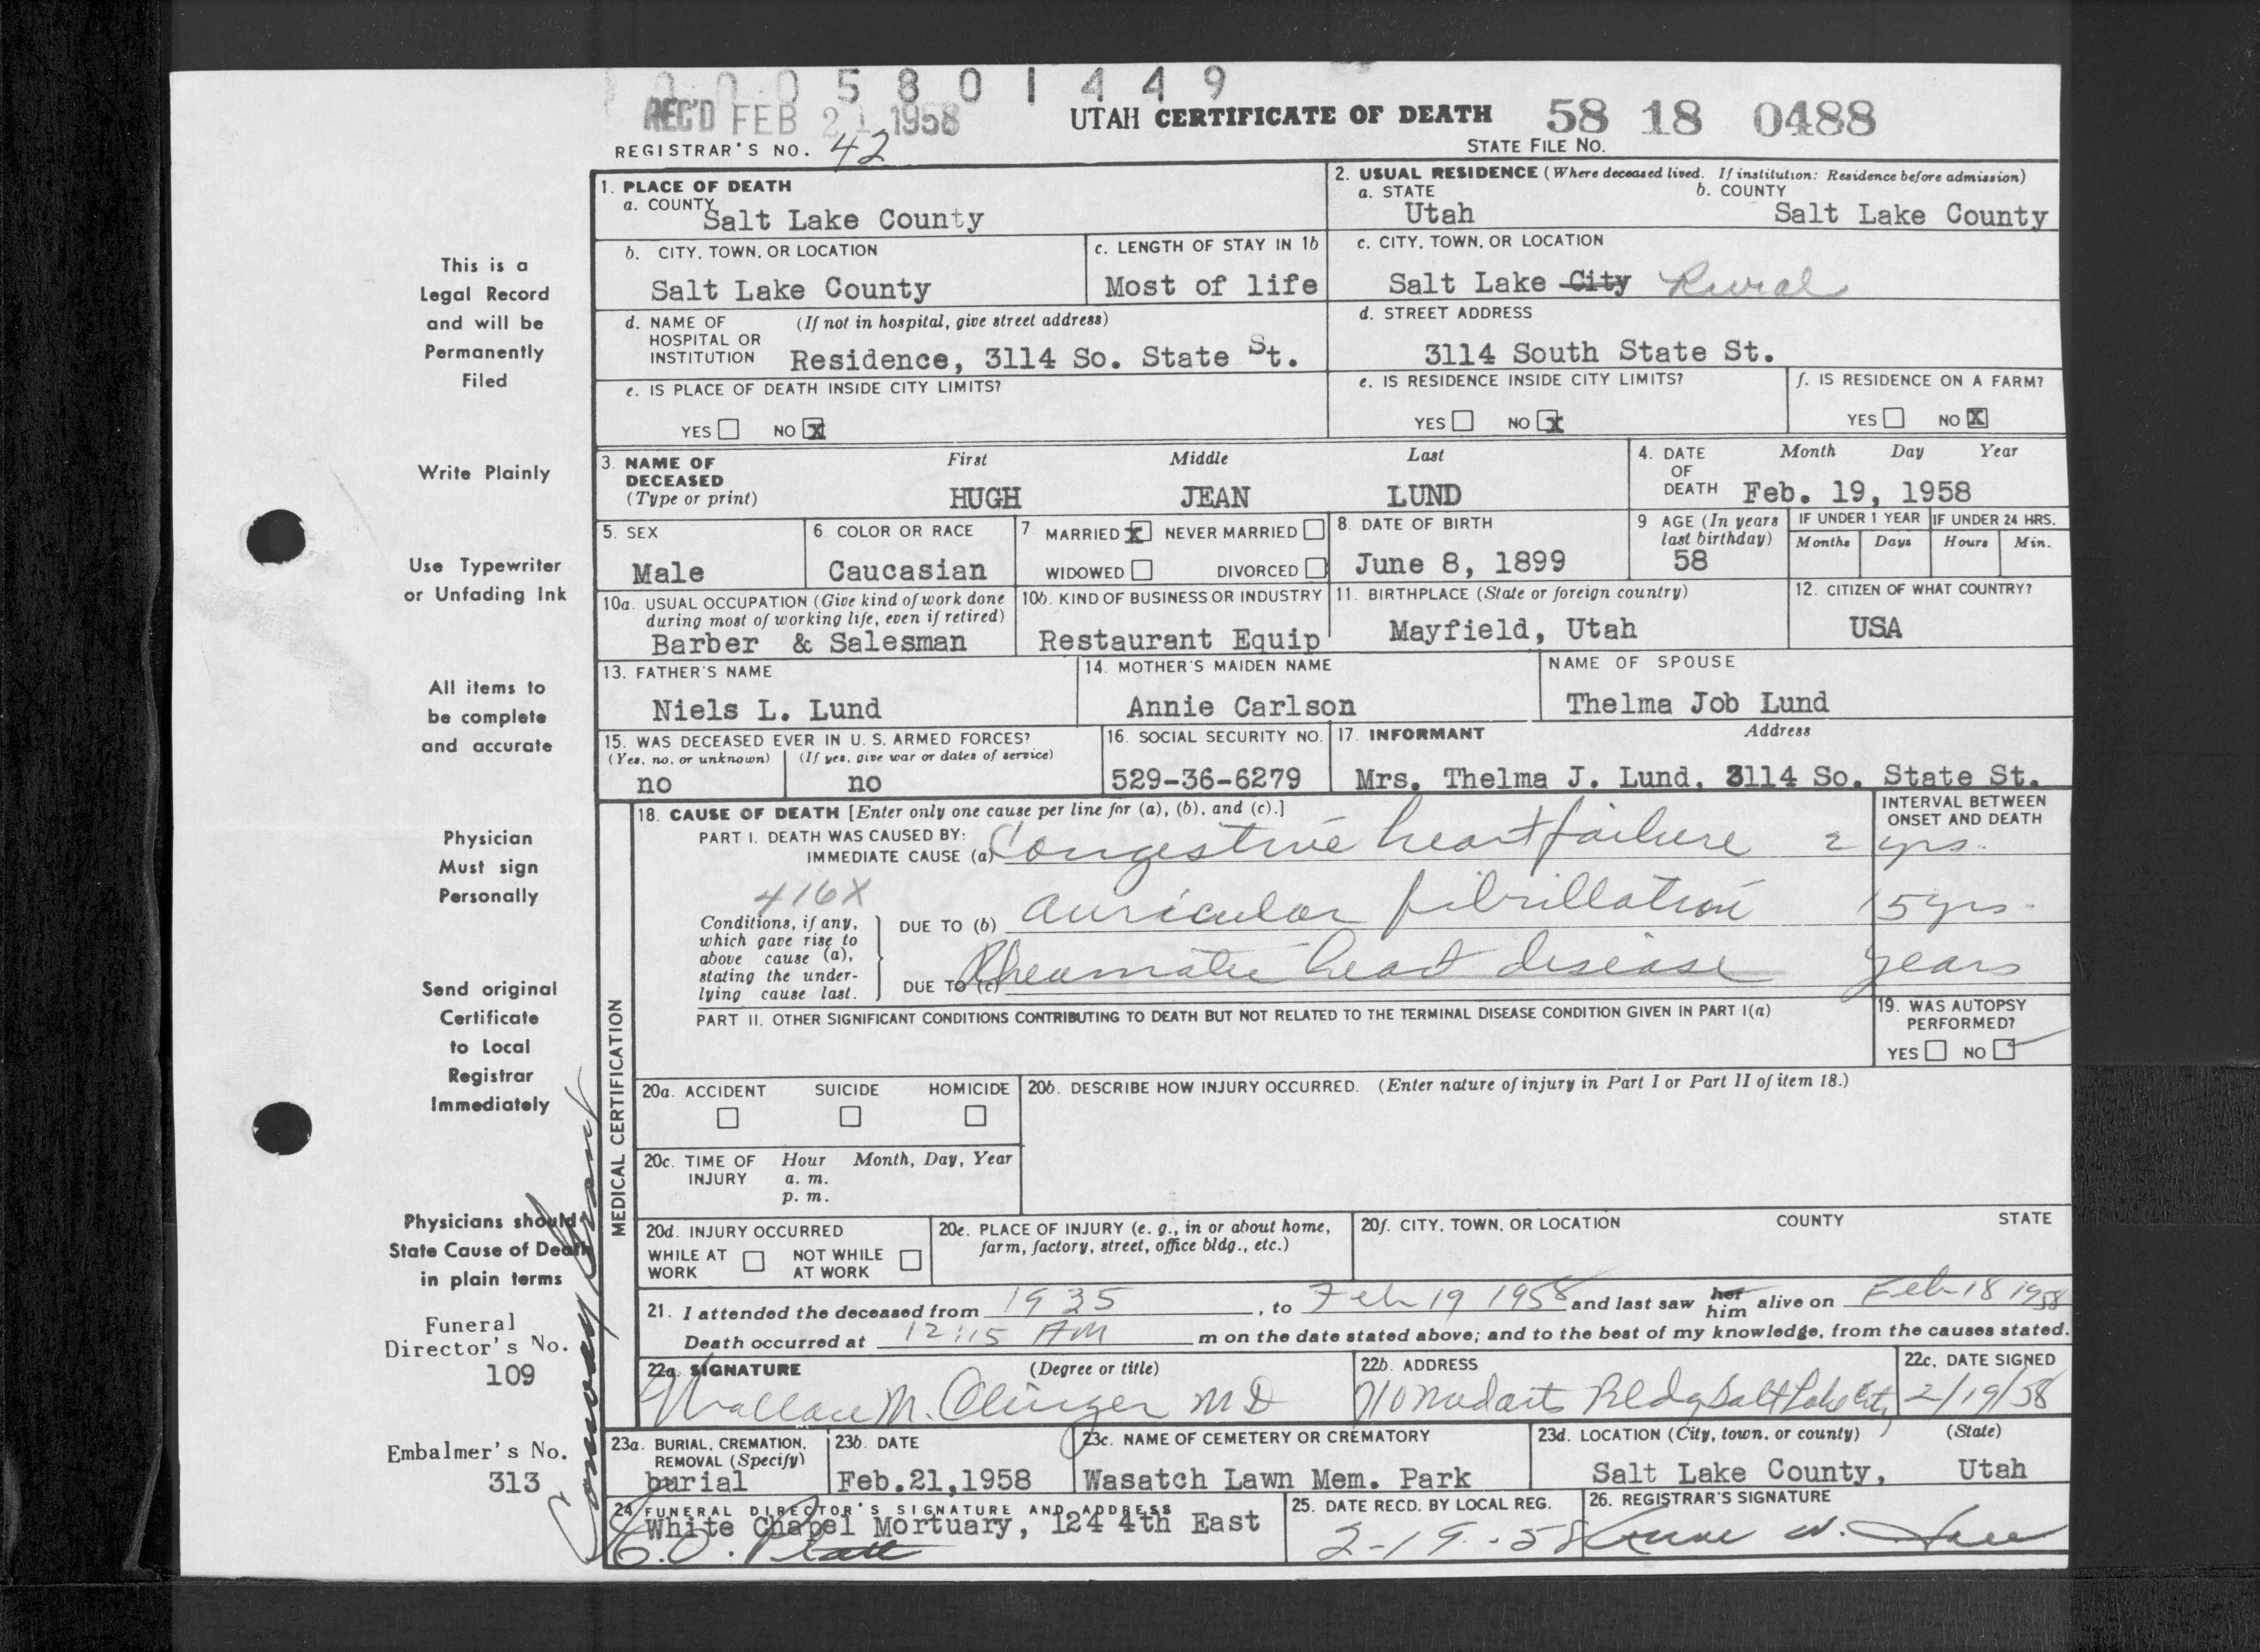 0005801449
REC'D FEB 21 1958
UTAH CERTIFICATE OF DEATH 58 18 0488
REGISTRAR'S NO. 42
STATE FILE NO.
1. PLACE OF DEATH
a. COUNTY
Salt Lake County
2. USUAL RESIDENCE (Where deceased lived. If institution: Residence before admission)
a. STATE b. COUNTY
Utah Salt Lake County
b. CITY, TOWN, OR LOCATION
Salt Lake County
c. LENGTH OF STAY IN 1b
Most of life
c. CITY, TOWN, OR LOCATION
Salt Lake City Rural
d. NAME OF (If not in hospital, give street address)
HOSPITAL OR
INSTITUTION Residence, 3114 So. State St.
d. STREET ADDRESS
3114 South State St.
e. IS PLACE OF DEATH INSIDE CITY LIMITS?
YES NO X
e. IS RESIDENCE INSIDE CITY LIMITS?
YES NO X
f. IS RESIDENCE ON A FARM?
YES NO X
3. NAME OF First Middle Last
DECEASED
(Type or print) HUGH JEAN LUND
4. DATE Month Day Year
OF
DEATH Feb. 19, 1958
5. SEX
Male
6. COLOR OR RACE
Caucasian
7. MARRIED X NEVER MARRIED
WIDOWED DIVORCED
8. DATE OF BIRTH
June 8, 1899
9 AGE (In years
last birthday)
58
IF UNDER 1 YEAR IF UNDER 24 HRS.
Months Days Hours Min.
10a. USUAL OCCUPATION (Give kind of work done
during most of working life, even if retired)
Barber & Salesman
10b. KIND OF BUSINESS OR INDUSTRY
Restaurant Equip
11. BIRTHPLACE (State or foreign country)
Mayfield, Utah
12. CITIZEN OF WHAT COUNTRY?
USA
13. FATHER'S NAME
Niels L. Lund
14. MOTHER'S MAIDEN NAME
Annie Carlson
NAME OF SPOUSE
Thelma Job Lund
15. WAS DECEASED EVER IN U. S. ARMED FORCES?
(Yes, no, or unknown) (If yes, give war or dates of service)
no no
16. SOCIAL SECURITY NO.
529-36-6279
17. INFORMANT Address
Mrs. Thelma J. Lund, 3114 So. State St.
MEDICAL CERTIFICATION
18. CAUSE OF DEATH [Enter only one cause per line for (a), (b), and (c).]
INTERVAL BETWEEN
ONSET AND DEATH
PART I. DEATH WAS CAUSED BY:
IMMEDIATE CAUSE (a) Congestive heart failure 2 yrs.
416X
Conditions, if any,
which gave rise to
above cause (a),
stating the under-
lying cause last.
DUE TO (b) auricular fibrillation 15 yrs.
DUE TO (c) Rheumatic heart disease years
PART II. OTHER SIGNIFICANT CONDITIONS CONTRIBUTING TO DEATH BUT NOT RELATED TO THE TERMINAL DISEASE CONDITION GIVEN IN PART I(a)
19. WAS AUTOPSY
PERFORMED?
YES NO
20a. ACCIDENT SUICIDE HOMICIDE
20b. DESCRIBE HOW INJURY OCCURRED. (Enter nature of injury in Part I or Part II of item 18.)
20c. TIME OF Hour Month, Day, Year
INJURY a. m.
p. m.
20d. INJURY OCCURRED
WHILE AT NOT WHILE
WORK AT WORK
20e. PLACE OF INJURY (e. g., in or about home,
farm, factory, street, office bldg., etc.)
20f. CITY, TOWN, OR LOCATION COUNTY STATE
21. I attended the deceased from 1935, to Feb 19 1958 and last saw her him alive on Feb 18 1958
Death occurred at 12:15 AM m on the date stated above; and to the best of my knowledge, from the causes stated.
22a. SIGNATURE (Degree or title)
Wallace M. Clinger MD
22b. ADDRESS
Bldg Salt Lake City
22c. DATE SIGNED
2/19/58
23a. BURIAL, CREMATION,
REMOVAL (Specify)
burial
23b. DATE
Feb.21,1958
23c. NAME OF CEMETERY OR CREMATORY
Wasatch Lawn Mem. Park
23d. LOCATION (City, town, or county) (State)
Salt Lake County, Utah
24 FUNERAL DIRECTOR'S SIGNATURE AND ADDRESS
White Chapel Mortuary, 124 4th East
25. DATE RECD. BY LOCAL REG.
2-19-58
26. REGISTRAR'S SIGNATURE
This is a
Legal Record
and will be
Permanently
Filed
Write Plainly
Use Typewriter
or Unfading Ink
All items to
be complete
and accurate
Physician
Must sign
Personally
Send original
Certificate
to Local
Registrar
Immediately
Physicians should
State Cause of Death
in plain terms
Funeral
Director's No.
109
Embalmer's No.
313